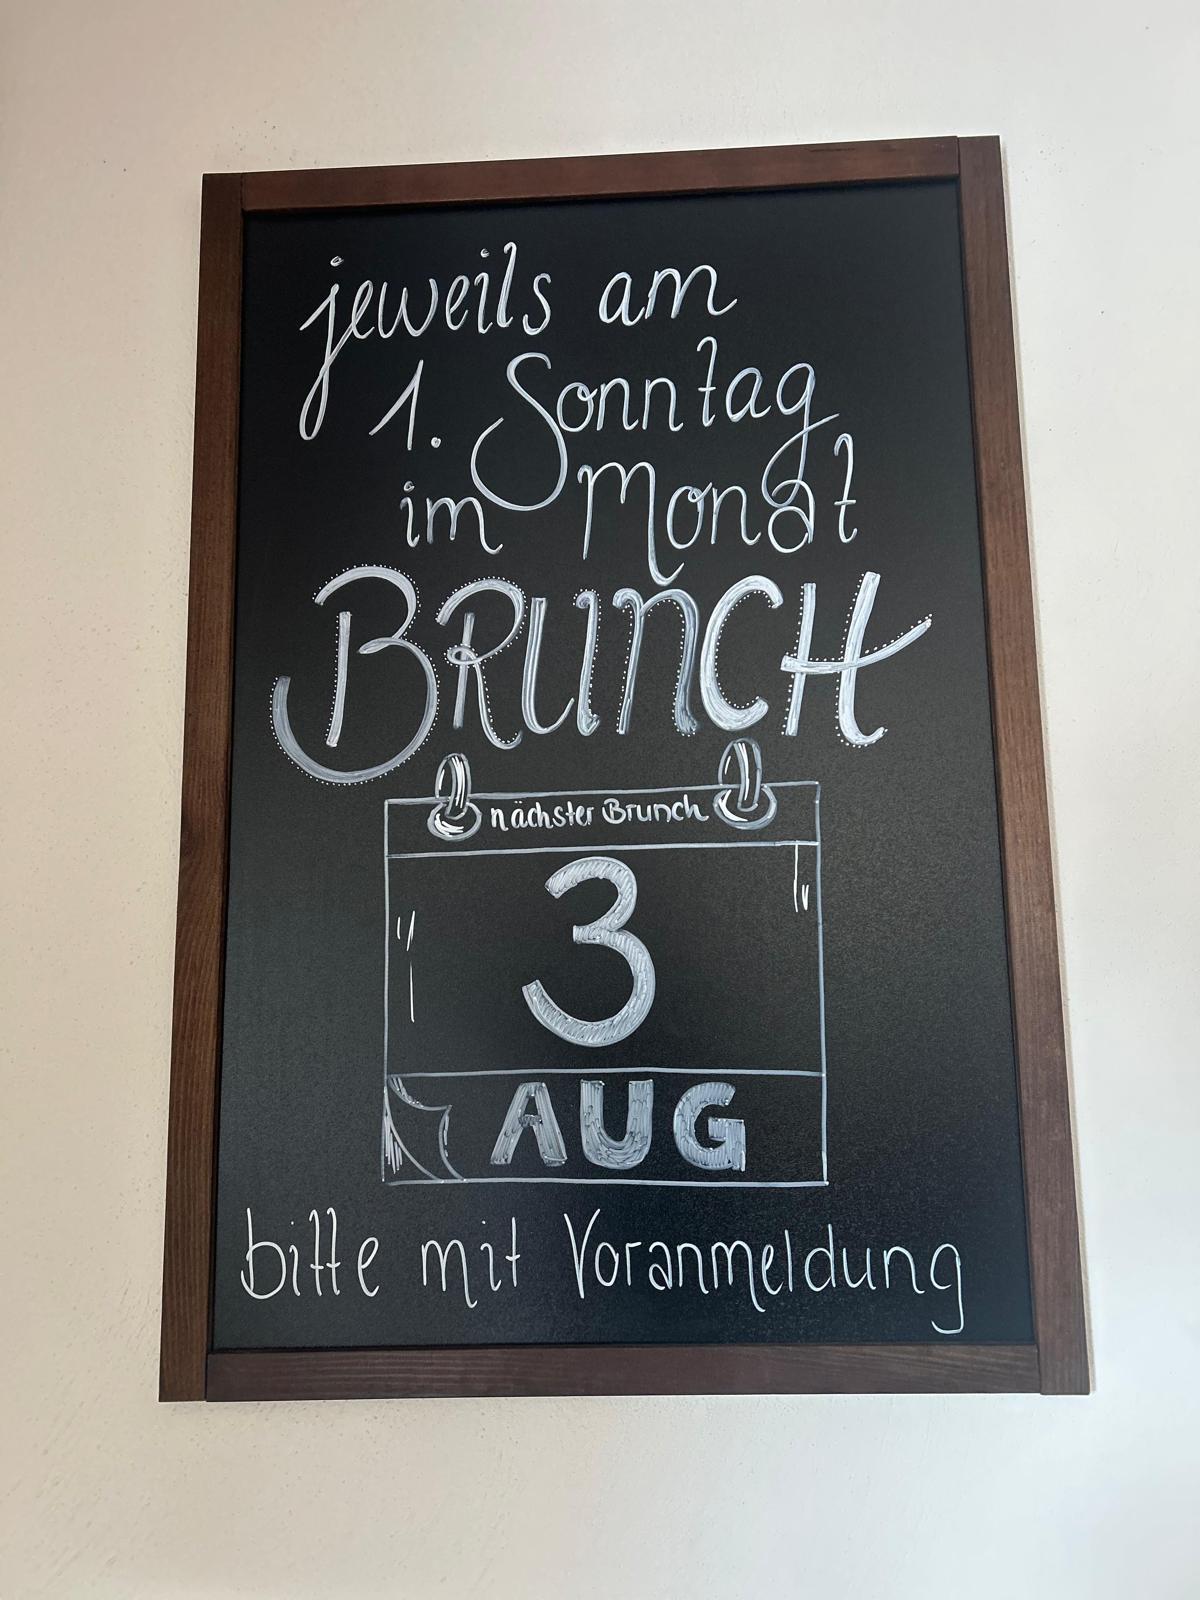 jeweils am
1. Sonntag
im Monat
BRUNCH
nächster Brunch
3
AUG
bitte mit Voranmeldung